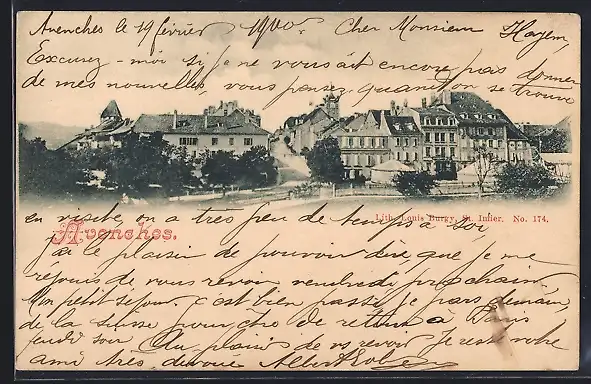 Avenches le 19 février 1900. Cher Monsieur Hayem,
Excusez-moi si je ne vous ait encore pas donner
de mes nouvelles vous pensez quand on se trouve
en visite, on a très peu de temps a soi
Lith. Louis Burgy, St. Imier. No. 174.
Avenches.
J'ai le plaisir de pouvoir dire que je me
rejouis de vous revoir vendredi prochain.
Mon petit séjour c'est bien passé je pars demain,
de la Suisse pour être de retour à Paris
jeudi soir Au plaisir de vs revoir Je reste votre
ami très dévoué Albert